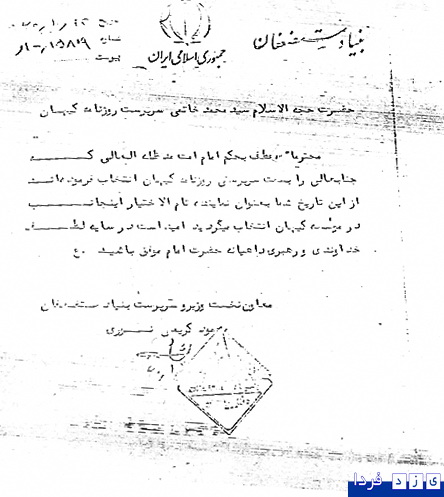 بنیاد مستضعفان
جمهوری اسلامی ایران
تاریخ
شماره ۱۵۸۱۹
پیوست
حضرت حجه الاسلام سید محمد خاتمی سرپرست روزنامه کیهان
محترما" عطف بحکم امام امت مد ظله العالی که
جنابعالی را بسمت سرپرستی روزنامه کیهان انتخاب فرموده‌اند
از این تاریخ شما بعنوان نماینده تام الاختیار اینجانب
در موسسه کیهان انتخاب میگردید امید است در سایه لطف
خداوندی و رهبری داهیانه حضرت امام موفق باشید . ع
معاون نخست وزیر و سرپرست بنیاد مستضعفان
محمود کریمی نوری
یزد فردا